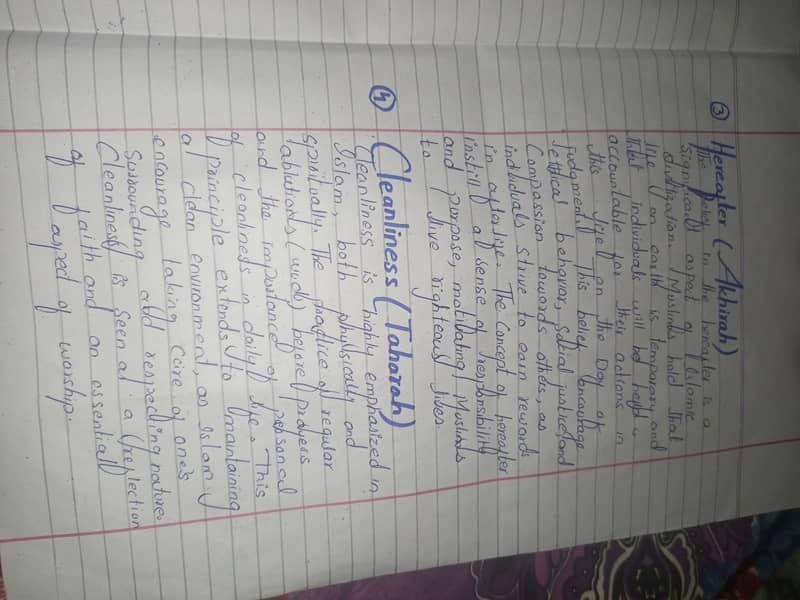 ③ Hereafter (Akhirah)
The belief in the hereafter is a
Significant aspect of Islamic
civilization. Muslims hold that
life on earth is temporary and
that individuals will be held
accountable for their actions in
this life on the Day of
judgment. This belief encourage
ethical behavior, social justice, and
Compassion towards others, as
individuals strive to earn rewards
in afterlife. The Concept of hereafter
instill a sense of responsibility
and purpose, motivating Muslims
to live righteous lives.
④ Cleanliness (Taharah)
Cleanliness is highly emphasized in
Islam, both physically and
spiritually. The practice of regular
ablutions (wudu) before prayers
and the importance of personal
of cleanliness in daily life. This
principle extends to maintaining
a clean environment, as Islam
encourage taking care of one's
Surrounding and respecting nature.
Cleanliness is seen as a reflection
of faith and an essential
of aspect of worship.